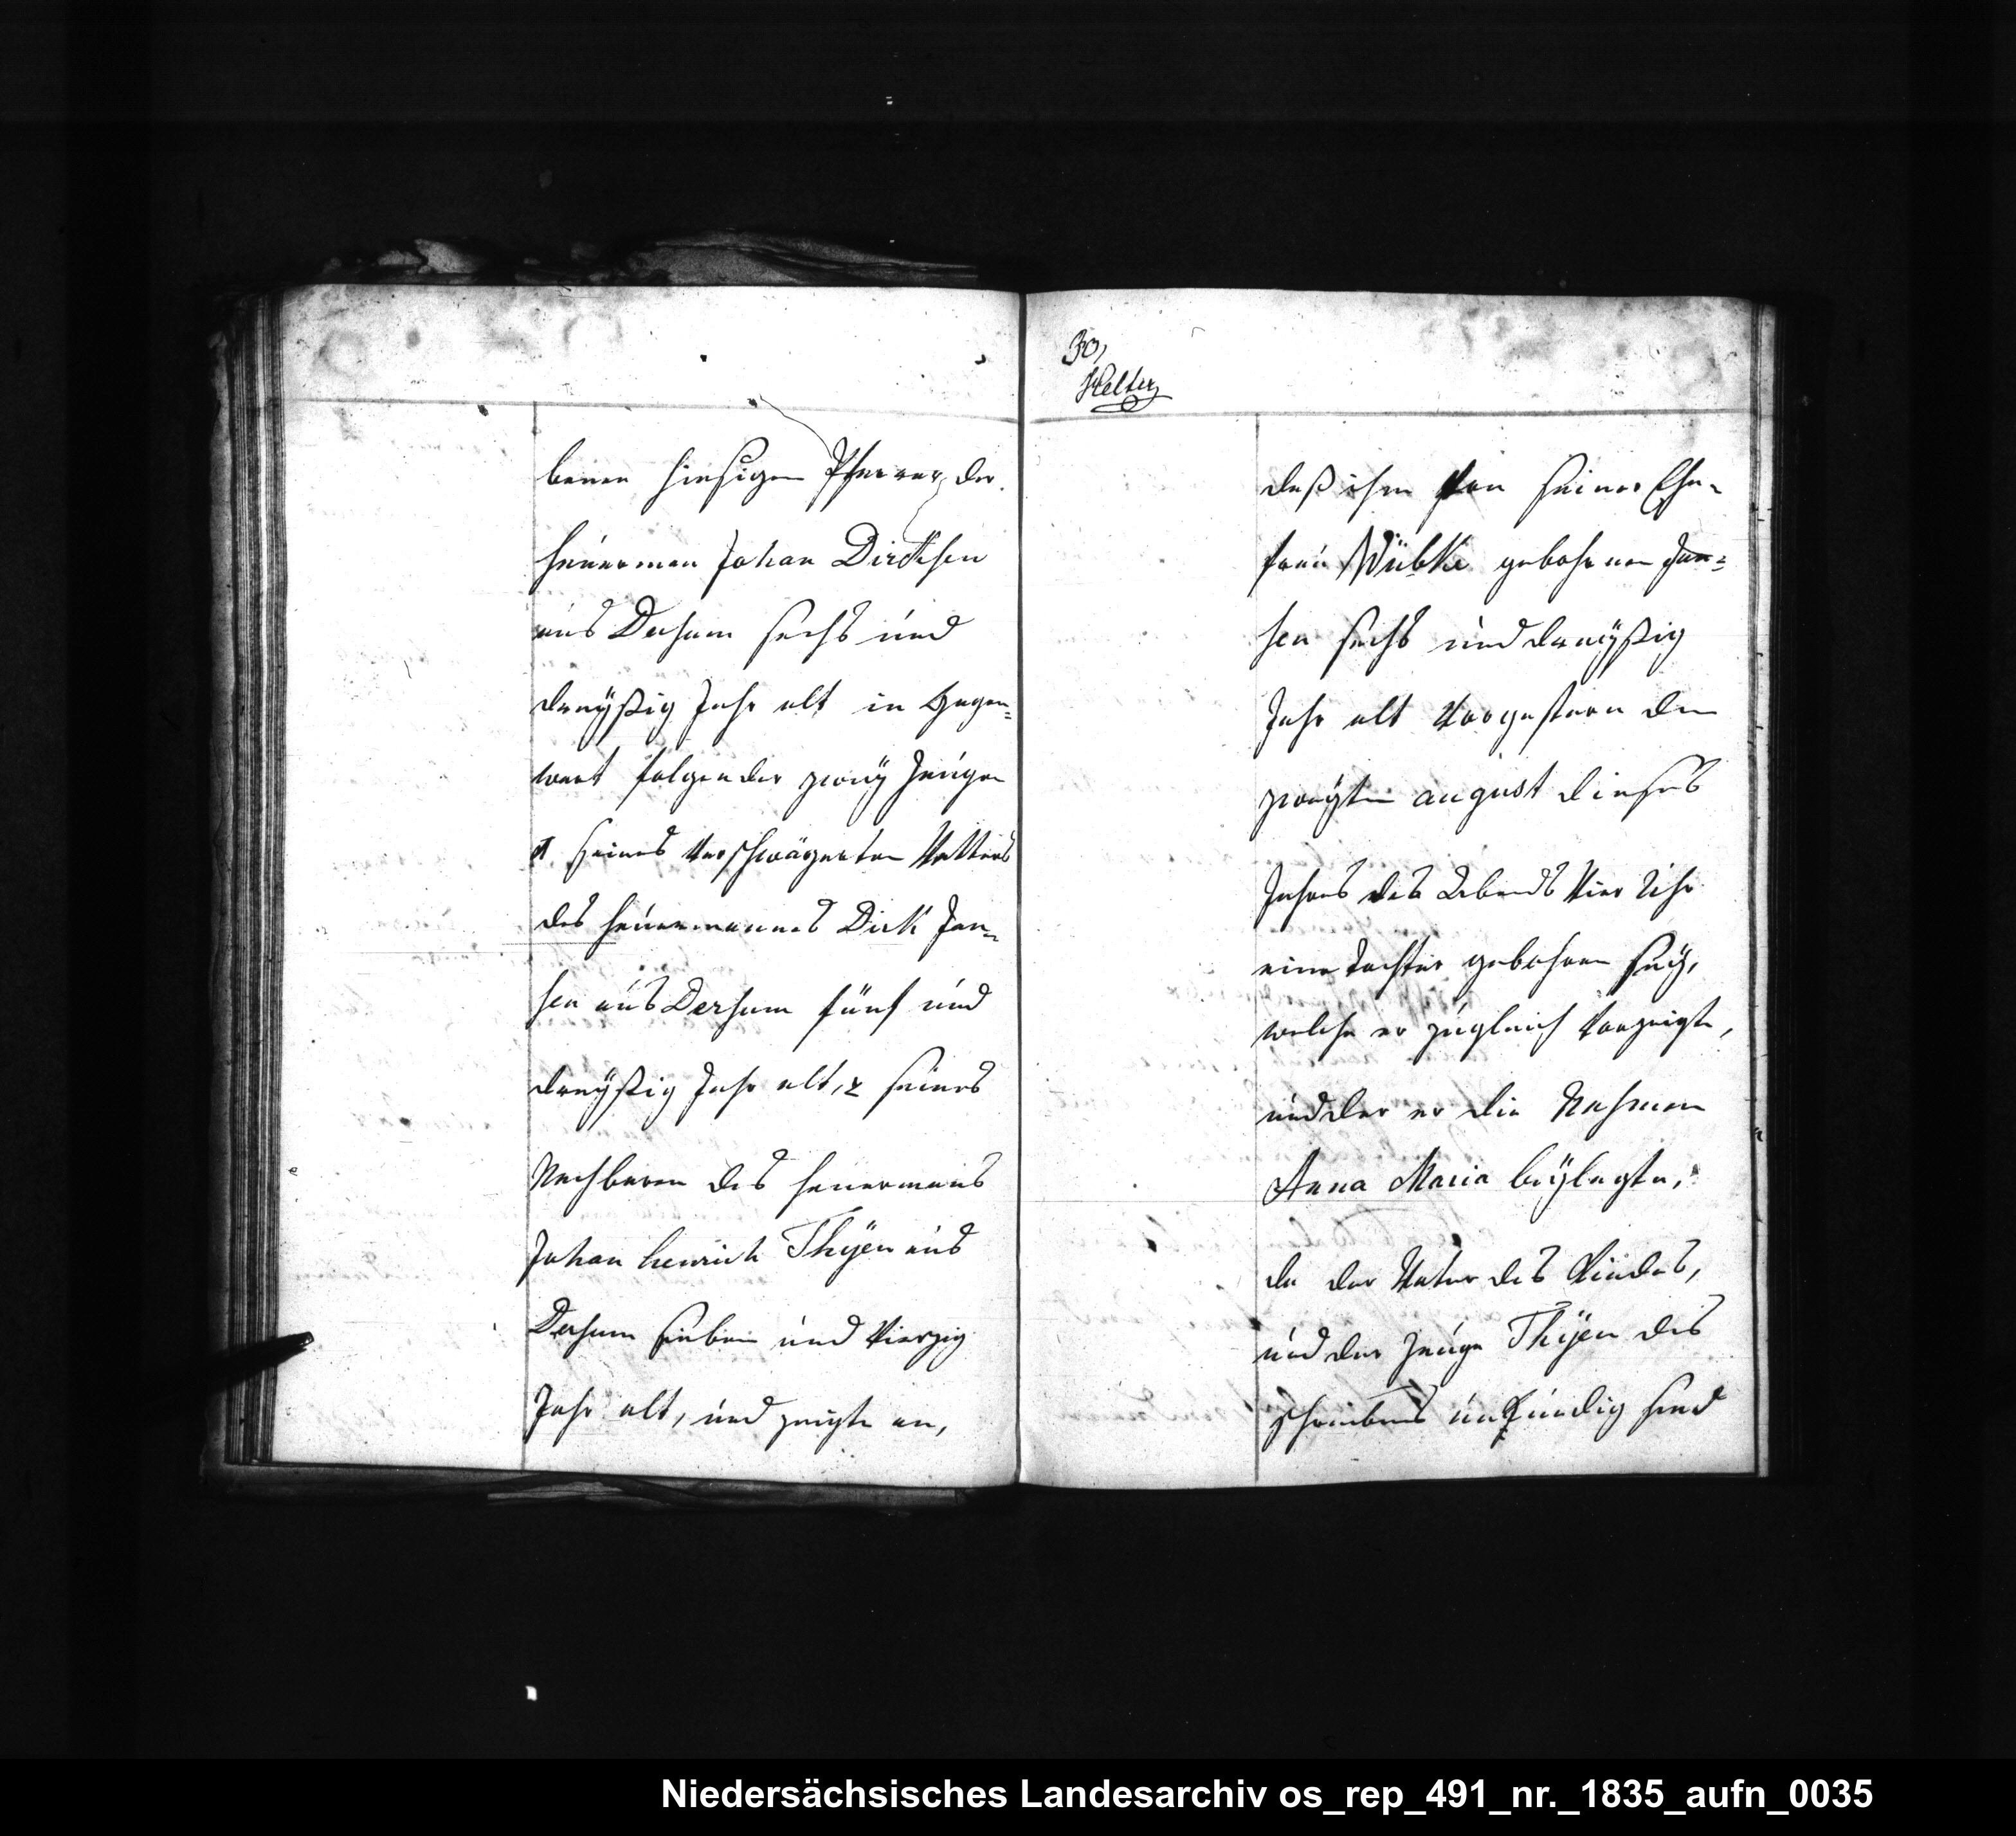 benen hiesigen Pfarrer, der
heüerman Johan Dircksen
aus Dersum sechs und
dreÿßig Jahr alt in Gegen=
wart folgender zweÿ Zeugen
1 seines verschwägerten Vetters
des heuermannes Dirk Jan=
sen aus Dersum fünf und
dreÿßig Jahr alt, 2 seines
Nachbaren des heuermans
Johan henrich Thÿen aus
Dersum sieben und vierzig
Jahr alt, und zeigte an,
30,
Kelter
daß ihm von seiner Ehe=
frau Wübke gebohrnen Jan=
sen sechs und dreÿßig
Jahr alt vorgestern den
zweÿten august dieses
Jahres des Abends vier Uhr
eine Tochter gebohren seÿ,
welche er zugleich vorzeigte,
und der er die Nahmen
Anna Maria beÿlegte,
da der Vater des Kindes,
und der Zeuge Thÿen des
schreibens unkündig sind
Niedersächsisches Landesarchiv os_rep_491_nr._1835_aufn_0035